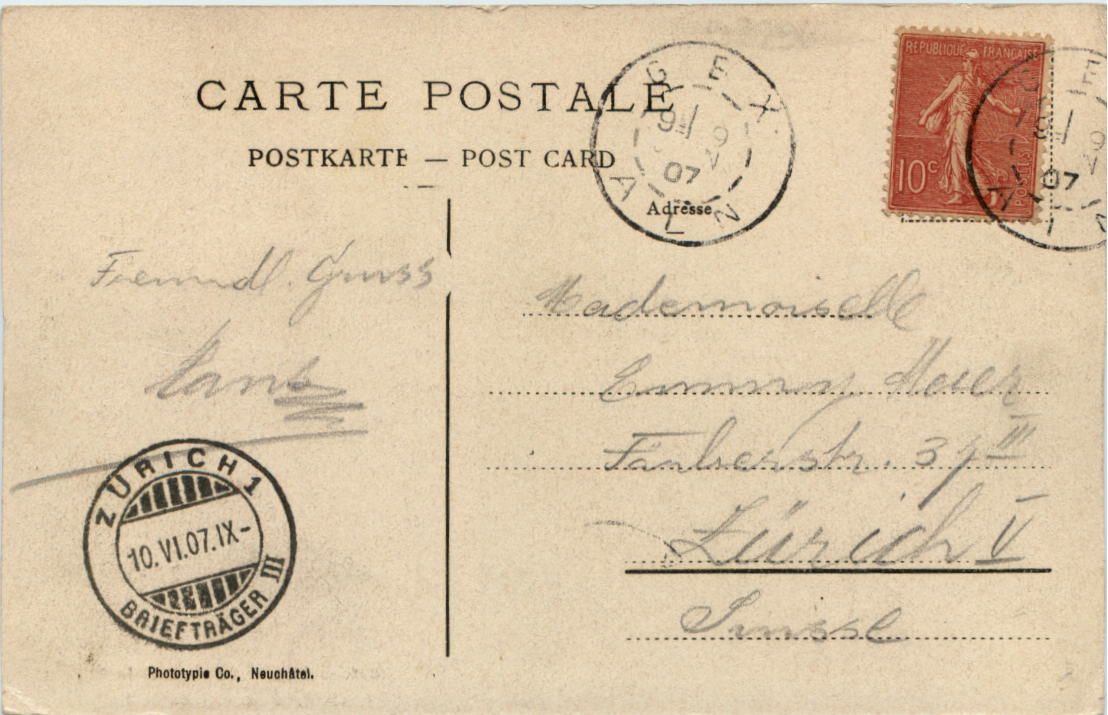 CARTE POSTALE
POSTKARTE — POST CARD
Adresse
GEX
9 07
AIN
REPUBLIQUE FRANÇAISE
10c
POSTES
07
Freundl. Gruss
Hans
Mademoiselle
Emmy Meier
Färberstr. 37 III
Zürich V
Suisse
ZÜRICH 1
10.VI.07.IX-
BRIEFTRÄGER III
Phototypie Co., Neuchâtel.